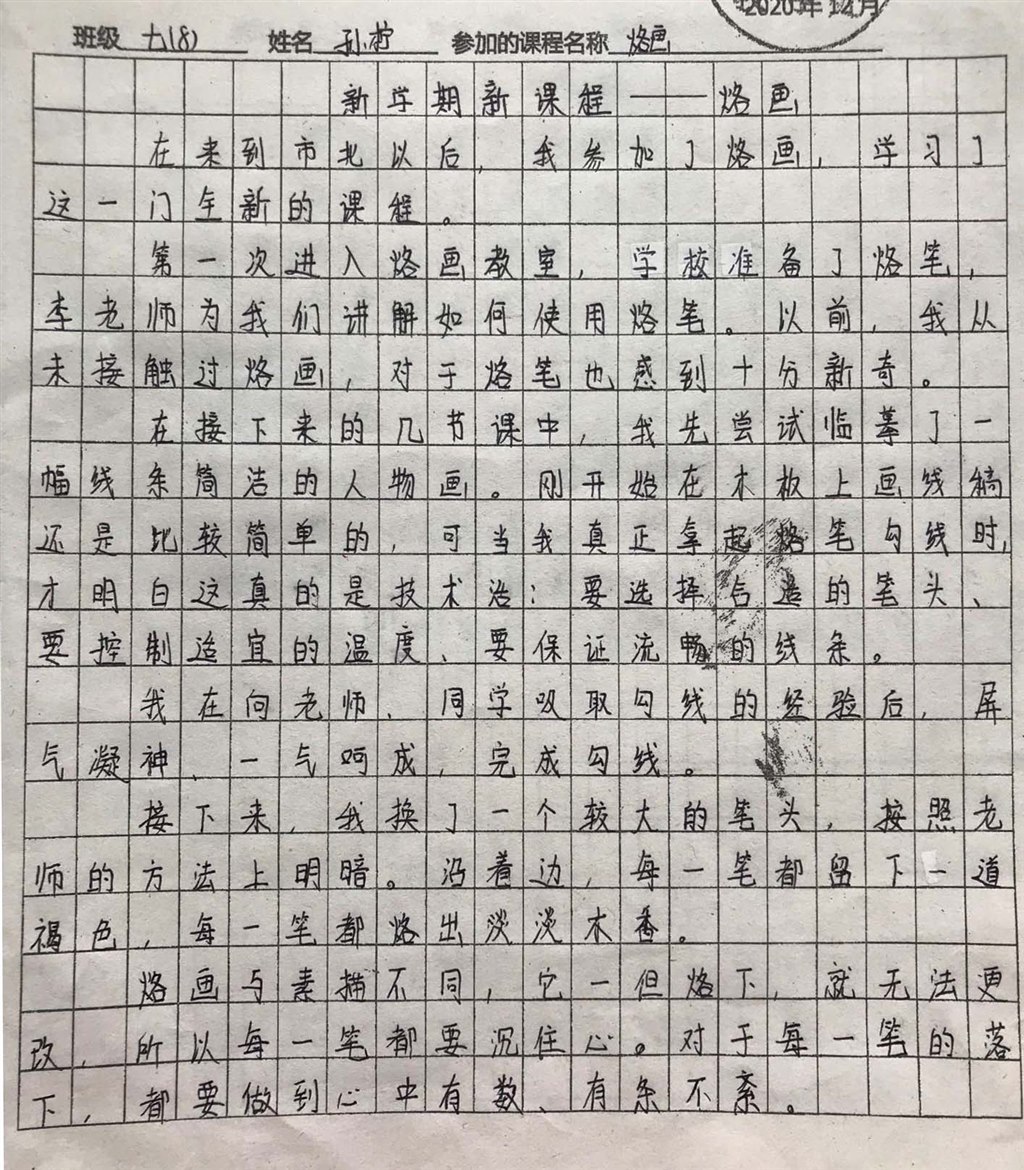 2020年12月
班级 九(8) 姓名 孙柠 参加的课程名称 烙画
新学期新课程——烙画
在来到市北以后，我参加了烙画，学习了
这一门全新的课程。
第一次进入烙画教室，学校准备了烙笔，
李老师为我们讲解如何使用烙笔。以前，我从
未接触过烙画，对于烙笔也感到十分新奇。
在接下来的几节课中，我先尝试临摹了一
幅线条简洁的人物画。刚开始在木板上画线稿
还是比较简单的，可当我真正拿起烙笔勾线时，
才明白这真的是技术活：要选择合适的笔头、
要控制适宜的温度、要保证流畅的线条。
我在向老师、同学吸取勾线的经验后，屏
气凝神、一气呵成，完成勾线。
接下来，我换了一个较大的笔头，按照老
师的方法上明暗。沿着边，每一笔都留下一道
褐色，每一笔都烙出淡淡木香。
烙画与素描不同，它一但烙下，就无法更
改，所以每一笔都要沉住心。对于每一笔的落
下，都要做到心中有数、有条不紊。